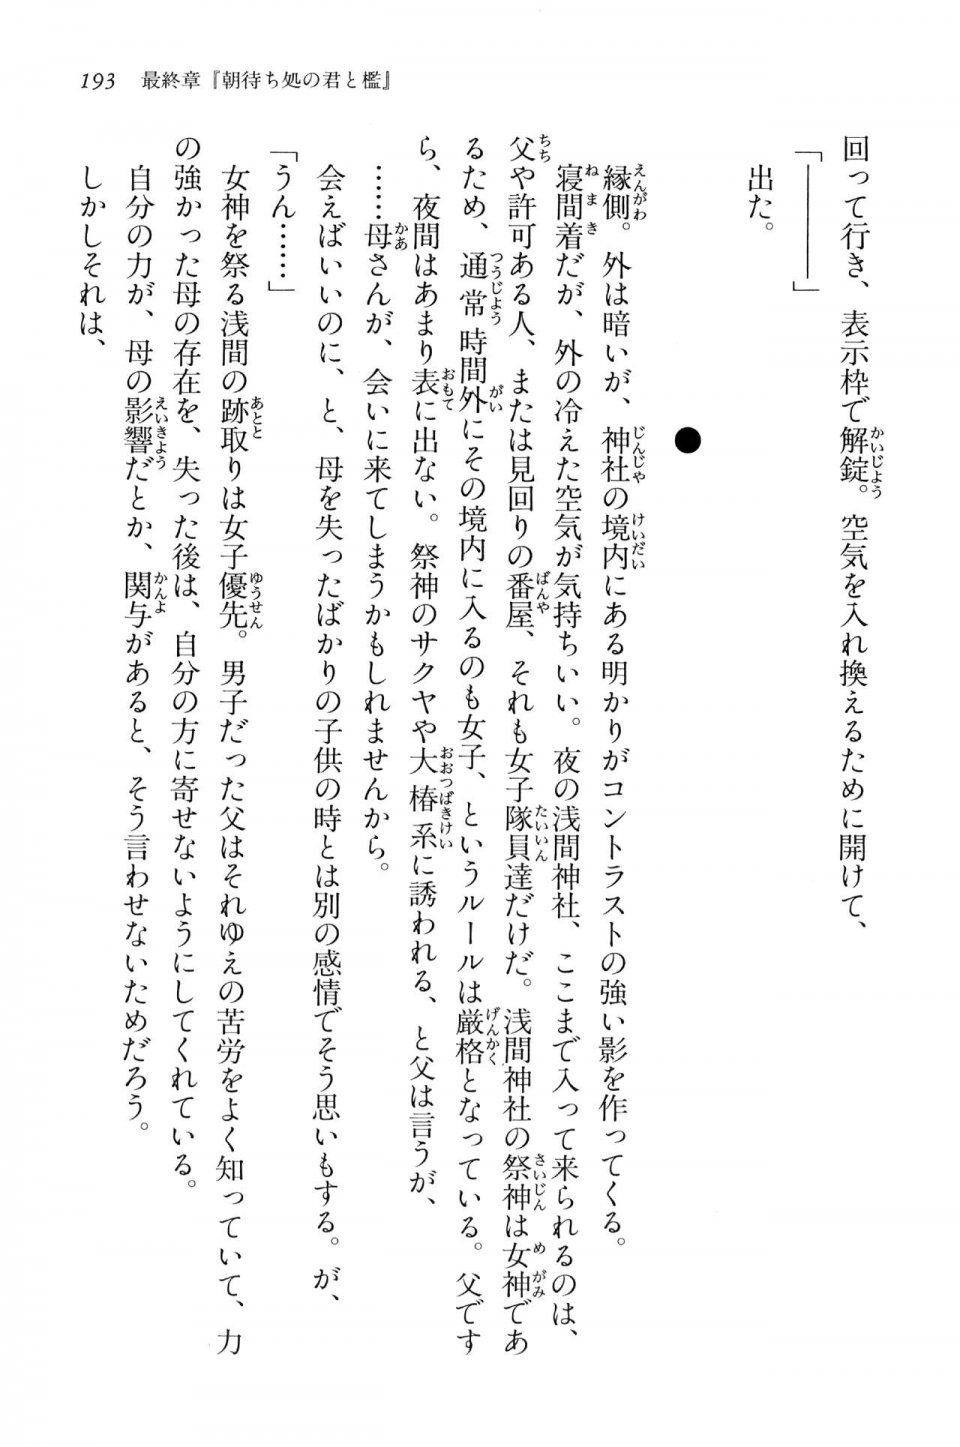 193　最終章『朝待ち処の君と檻』
回って行き、表示枠で解錠。空気を入れ換えるために開けて、
「―――」
出た。
●
縁側。外は暗いが、神社の境内にある明かりがコントラストの強い影を作ってくる。
寝間着だが、外の冷えた空気が気持ちいい。夜の浅間神社、ここまで入って来られるのは、
父や許可ある人、または見回りの番屋、それも女子隊員達だけだ。浅間神社の祭神は女神であ
るため、通常時間外にその境内に入るのも女子、というルールは厳格となっている。父です
ら、夜間はあまり表に出ない。祭神のサクヤや大椿系に誘われる、と父は言うが、
……母さんが、会いに来てしまうかもしれませんから。
会えばいいのに、と、母を失ったばかりの子供の時とは別の感情でそう思いもする。が、
「うん……」
女神を祭る浅間の跡取りは女子優先。男子だった父はそれゆえの苦労をよく知っていて、力
の強かった母の存在を、失った後は、自分の方に寄せないようにしてくれている。
自分の力が、母の影響だとか、関与があると、そう言わせないためだろう。
しかしそれは、